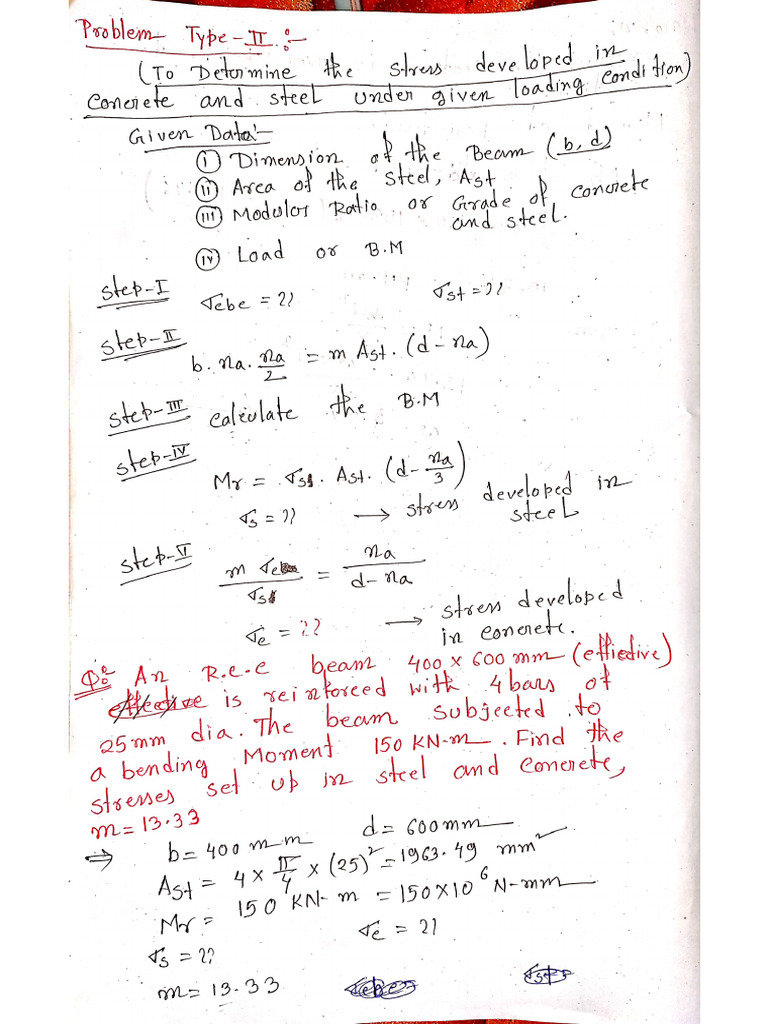 Problem Type-II :-
(To Determine the stress developed in
concrete and steel under given loading condition)
Given Data:-
(i) Dimension of the Beam (b, d)
(ii) Area of the steel, Ast
(iii) Modular Ratio or Grade of concrete
and steel.
(iv) Load or B.M
Step-I σcbc = ?? σst = ??
Step-II b. na. na/2 = m Ast. (d - na)
Step-III calculate the B.M
Step-IV Mr = σst. Ast. (d - na/3)
σs = ?? → stress developed in
steel
Step-V m σc / σst = na / d - na
σc = ?? → stress developed
in concrete.
Q: An R.c.c beam 400 x 600 mm (effective)
is reinforced with 4 bars of
25 mm dia. The beam subjected to
a bending Moment 150 KN-m. Find the
stresses set up in steel and concrete,
m = 13.33
⇒ b = 400 mm d = 600 mm
Ast = 4 x π/4 x (25)² = 1963.49 mm²
Mr = 150 KN-m = 150x10⁶ N-mm
σs = ?? σc = ??
m = 13.33